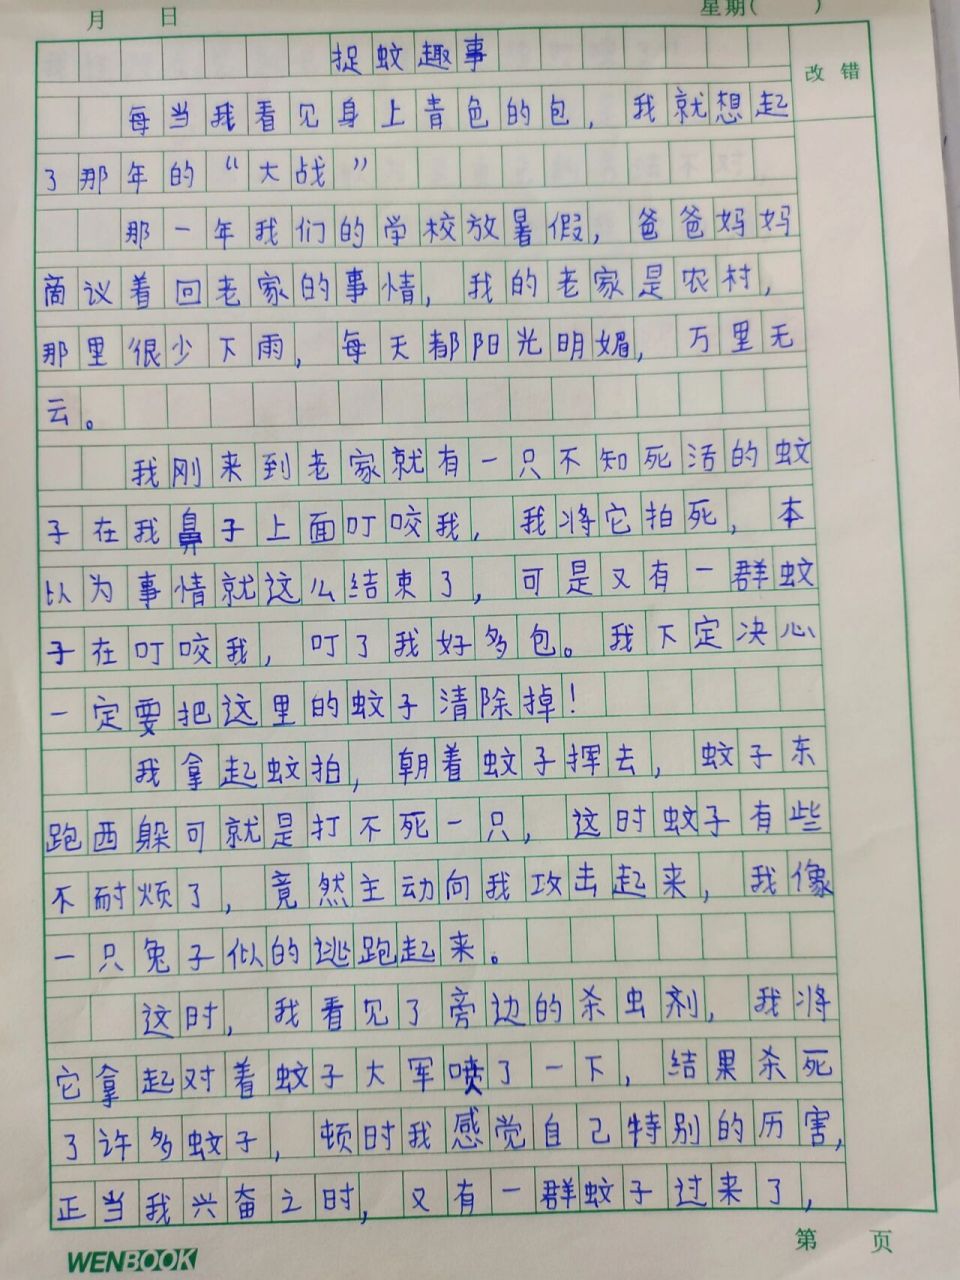 月 日 星期( )
捉蚊趣事
改错
每当我看见身上青色的包，我就想起
了那年的“大战”
那一年我们的学校放暑假，爸爸妈妈
商议着回老家的事情，我的老家是农村，
那里很少下雨，每天都阳光明媚，万里无
云。
我刚来到老家就有一只不知死活的蚊
子在我鼻子上面叮咬我，我将它拍死，本
以为事情就这么结束了，可是又有一群蚊
子在叮咬我，叮了我好多包。我下定决心
一定要把这里的蚊子清除掉！
我拿起蚊拍，朝着蚊子挥去，蚊子东
跑西躲可就是打不死一只，这时蚊子有些
不耐烦了，竟然主动向我攻击起来，我像
一只兔子似的逃跑起来。
这时，我看见了旁边的杀虫剂，我将
它拿起对着蚊子大军喷了一下，结果杀死
了许多蚊子，顿时我感觉自己特别的历害，
正当我兴奋之时，又有一群蚊子过来了，
WENBOOK 第 页